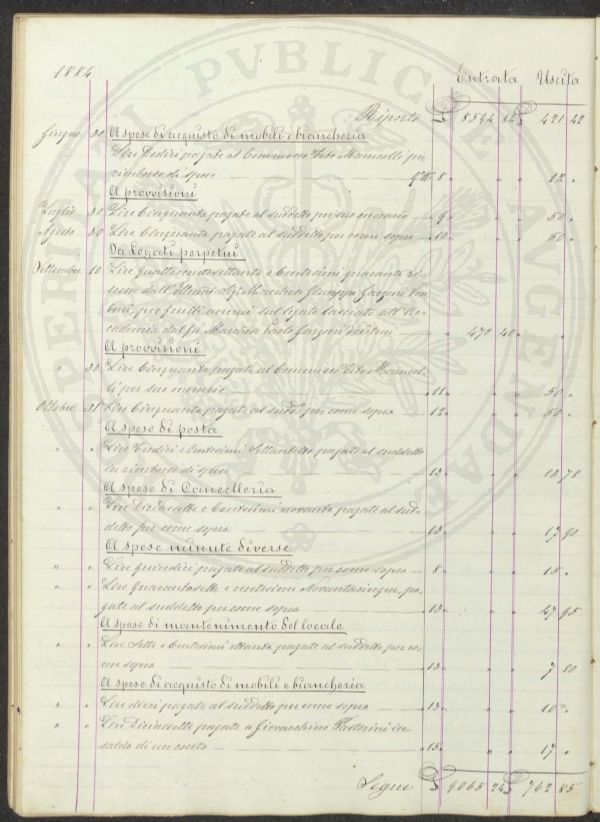 1884 Entrata Uscita
Riporto £ 8594 84 £ 421 22
Giugno 30 A spese di acquisto di mobili e biancheria
Lire Dodici pagate al Commesso Tito Mannelli per
rimborso di spese 8 " " " 12 "
A provvisioni
Luglio 30 Lire Cinquanta pagate al suddetto per suo onorario 9 " " " 50 "
Agosto 30 Lire Cinquanta pagate al suddetto per come sopra 10 " " " 50 "
Da Legati perpetui
Settembre 10 Lire quattrocentosettanta e Centesimi quaranta
dall'Illmo Sig. Marchese Giuseppe Garzoni
per frutti annui sul legato lasciato all'Ac
cademia dal fu Marchese Paolo Garzoni Venturi " 470 40 " "
A provvisioni
" 30 Lire Cinquanta pagate al Commesso Tito Mannel
li per suo onorario 11 " " " 50 "
Ottobre 31 Lire Cinquanta pagate al sudd° per come sopra 12 " " " 50 "
A spese di posta
" " Lire Tredici e Centesimi Settantotto pagate al suddetto
in rimborso di spese 13 " " " 13 78
A spese di Cancelleria
" " Lire Diciassette e Centesimi novanta pagate al sud-
detto per come sopra 13 " " " 17 90
A spese minute diverse
" " Lire Quindici pagate al suddetto per come sopra 8 " " " 15 "
" " Lire Quarantasette e centesimi Novantacinque, pa-
gate al suddetto per come sopra 13 " " " 47 95
A spese di mantenimento del locale
" " Lire Sette e Centesimi ottanta pagate al suddetto per co-
me sopra 13 " " " 7 80
A spese di acquisto di mobili e biancheria
" " Lire dieci pagate al suddetto per come sopra 13 " " " 10 "
" " Lire Diciassette pagate a Giovacchino in
saldo di un conto 13 " " " 17 "
Segue £ 9065 24 £ 762 85
PERICLITATI PVBLICE AVGENDAE